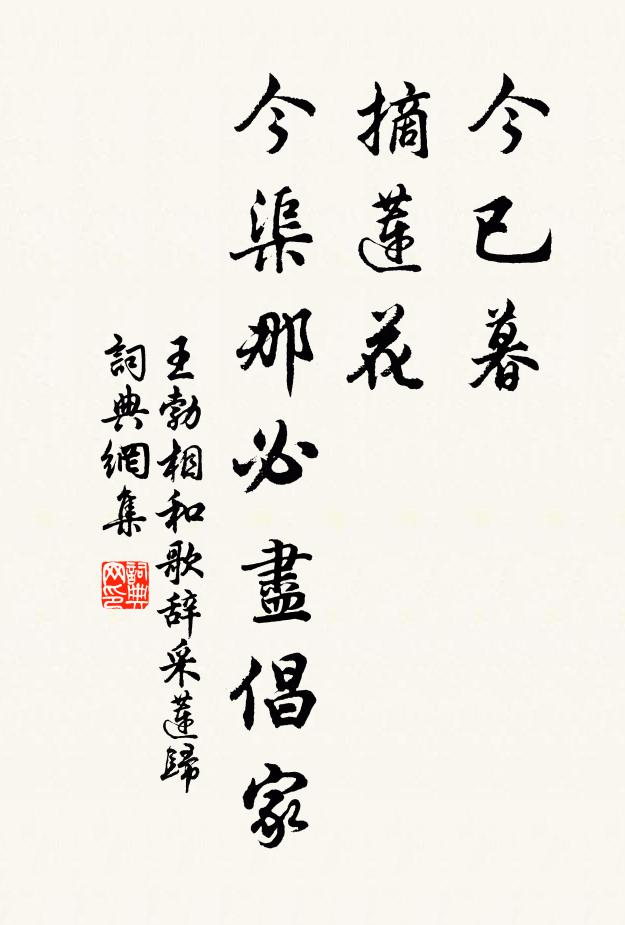 今已暮
摘蓮花
今渠那必盡倡家
王勃相和歌辞采蓮歸
詞典網集
詞典
网印